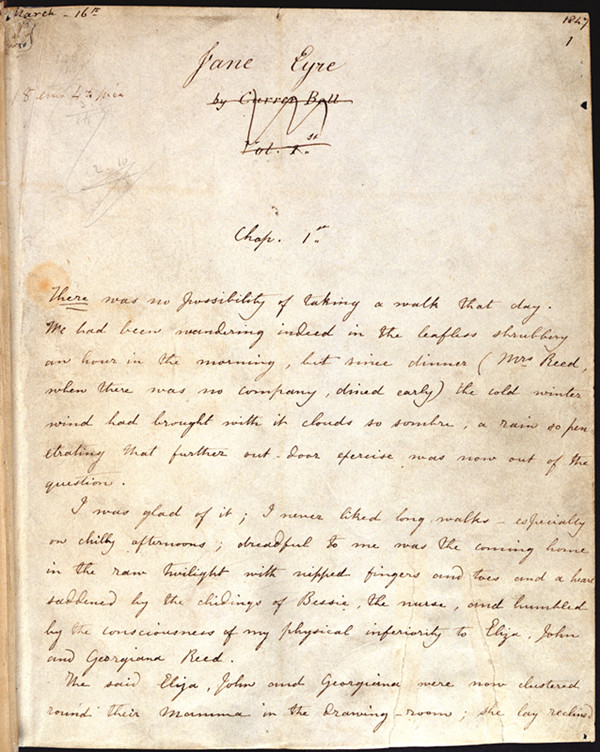 March - 16th
1847
1
Jane Eyre
by Currer Bell
Vol. 1.st
Chap. 1st
There was no possibility of taking a walk that day.
We had been wandering indeed in the leafless shrubbery
an hour in the morning, but since dinner (Mrs Reed,
when there was no company, dined early) the cold winter
wind had brought with it clouds so sombre, a rain so pen
etrating that further out-door exercise was now out of the
question.
I was glad of it; I never liked long walks - especially
on chilly afternoons; dreadful to me was the coming home
in the raw twilight with nipped fingers and toes and a heart
saddened by the chidings of Bessie, the nurse, and humbled
by the consciousness of my physical inferiority to Eliza, John
and Georgiana Reed.
The said Eliza, John and Georgiana were now clustered
round their Mamma in the drawing-room; she lay reclined